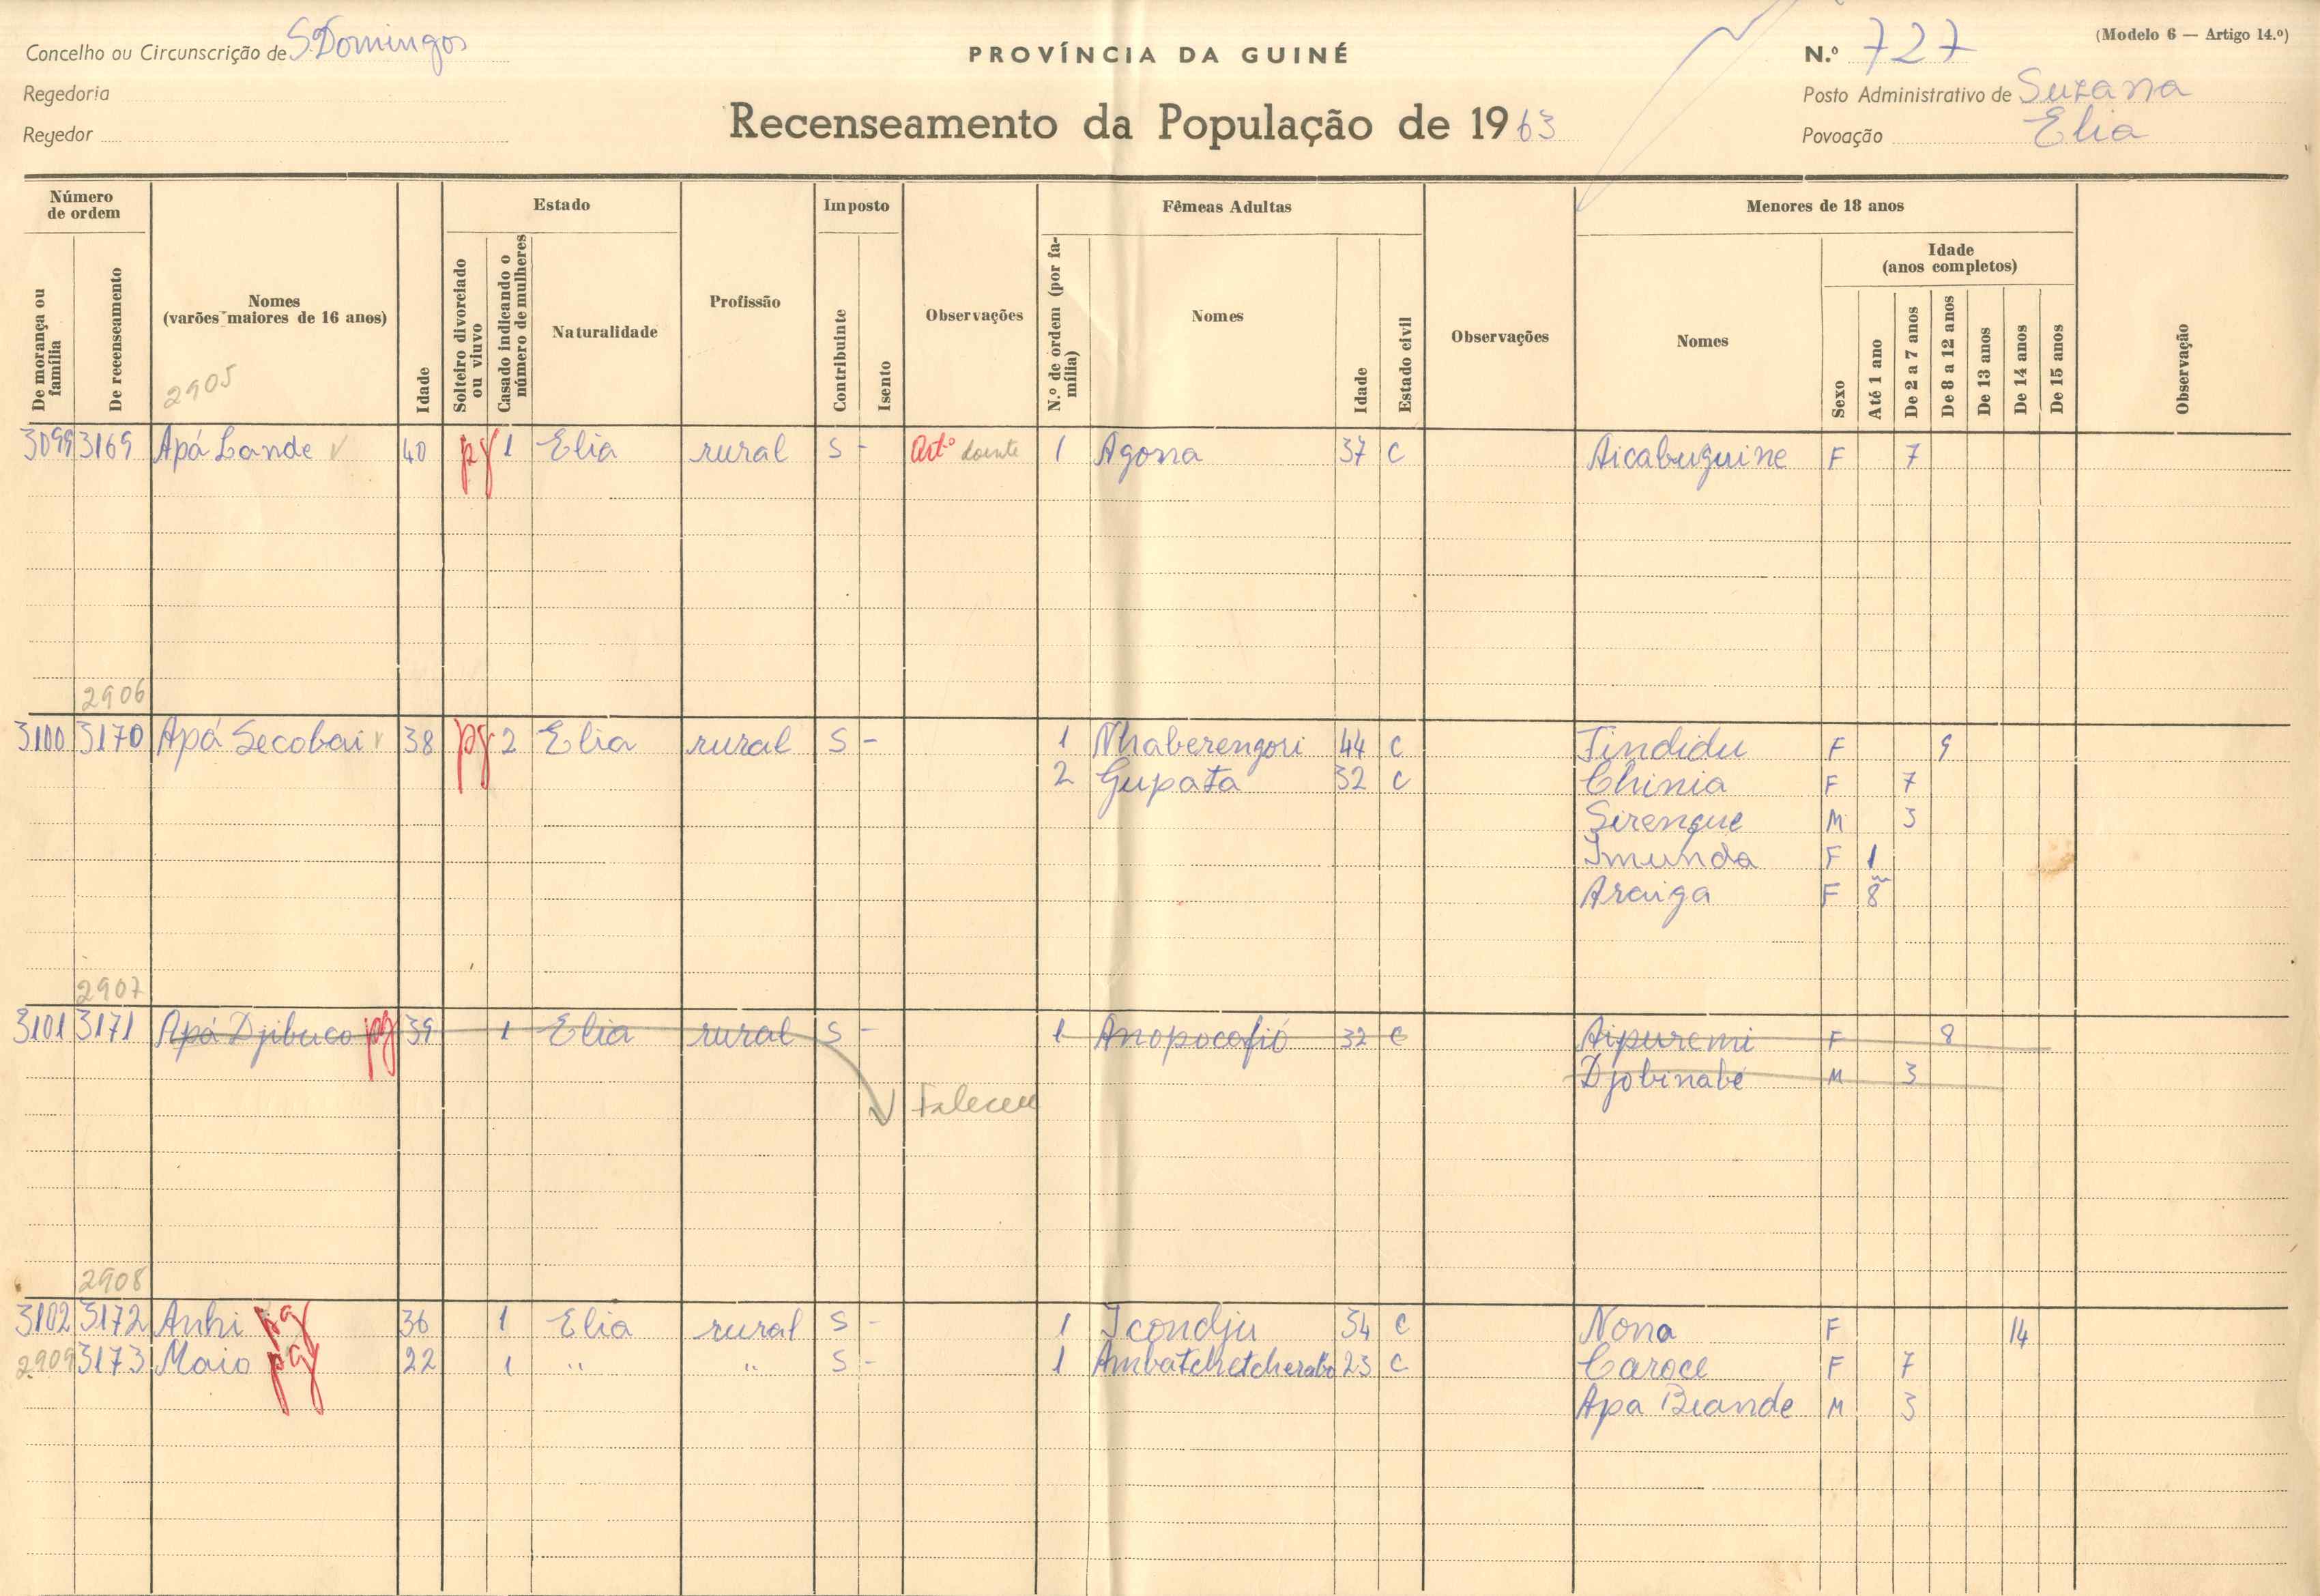 Concelho ou Circunscrição de S. Domingos
Regedoria
Regedor
PROVÍNCIA DA GUINÉ
Recenseamento da População de 1963
(Modelo 6 — Artigo 14.º)
N.º 727
Posto Administrativo de Suzana
Povoação Elia
Número de ordem
De morança ou família
De recenseamento
Nomes (varões maiores de 16 anos)
2905
Idade
Estado
Solteiro divorciado ou viuvo
Casado indicando o número de mulheres
Naturalidade
Profissão
Imposto
Contribuinte
Isento
Observações
Fêmeas Adultas
N.º de ordem (por família)
Nomes
Idade
Estado civil
Observações
Menores de 18 anos
Nomes
Sexo
Idade (anos completos)
Até 1 ano
De 2 a 7 anos
De 8 a 12 anos
De 13 anos
De 14 anos
De 15 anos
Observação
3099 3169 Apá Lande 40 pg 1 Elia rural S - doente 1 Agona 37 C Aicabuguine F 7
2906
3100 3170 Apá Secobai 38 pg 2 Elia rural S - 1 Nhaberengori 44 C Jindidu F 9
2 Gupata 32 C Chinia F 7
Sirengue M 3
Imunda F 1
Araiga F 8
2907
3101 3171 Apá Djibuco pg 39 1 Elia rural S - 1 Anopocafió 32 C Aipuremi F 8
Djobinabé M 3
Faleceu
2908
3102 3172 Anhi pg 36 1 Elia rural S - 1 Icondju 34 C Nona F 14
2909 3173 Maio pg 22 1 " " S - 1 Ambatchetcherabo 23 C Caroce F 7
Apa Biande M 3